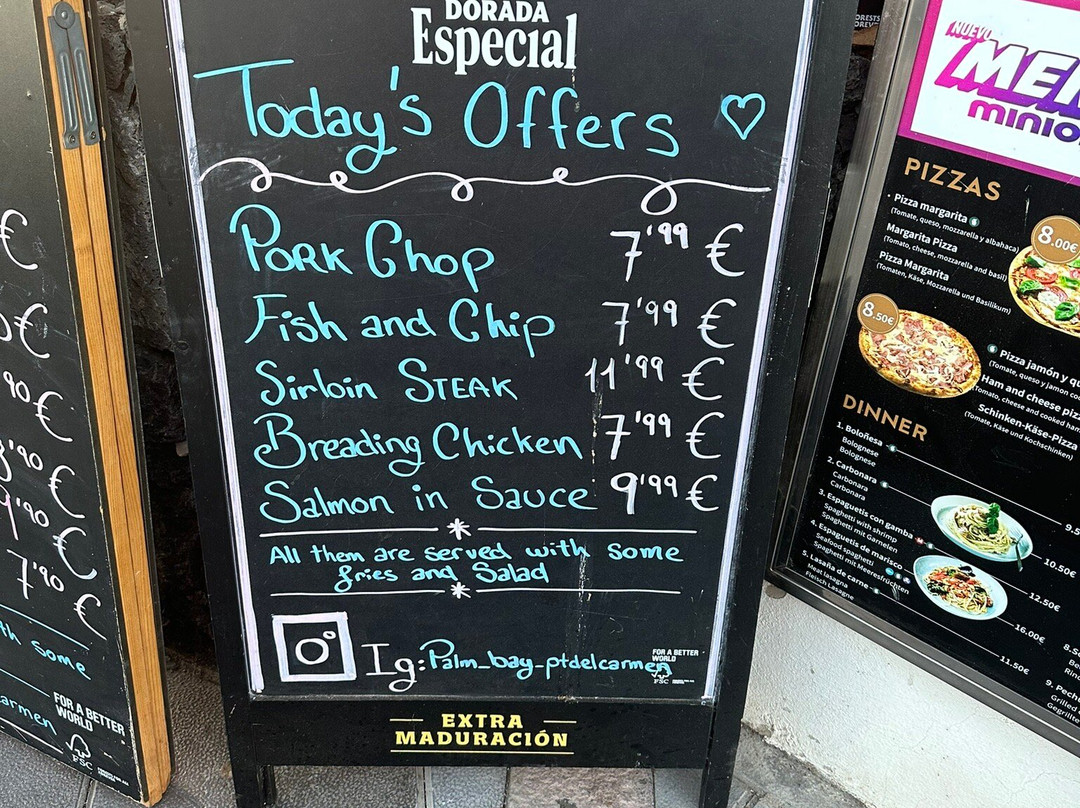 DORADA
Especial
Today's Offers
Pork Chop 7'99 €
Fish and Chip 7'99 €
Sirloin STEAK 11'99 €
Breading Chicken 7'99 €
Salmon in Sauce 9'99 €
All them are served with some
fries and Salad
Ig: Palm_bay_ptdelcarmen
FOR A BETTER
WORLD
FSC
EXTRA
MADURACIÓN
€
€
'90 €
'90 €
9'90 €
7'90 €
some
carmen
FOR A BETTER
WORLD
FSC
NUEVO
minio
PIZZAS
Pizza margarita
(Tomate, queso, mozzarella y albahaca)
Margarita Pizza
(Tomato, cheese, mozzarella and basil)
Pizza Margarita
(Tomaten, Käse, Mozzarella und Basilikum)
8.00€
8.50€
Pizza jamón y
(Tomate, queso y jamon
Ham and cheese
(Tomato, cheese and cooked
Schinken-Käse-Pizza
(Tomate, Käse und Kochschinken)
DINNER
1. Boloñesa
Bolognese
Bolognese
2. Carbonara
Carbonara
Carbonara
3. Espaguetis con gamba
Spaghetti with shrimp
Spaghetti mit Garnelen
4. Espaguetis de marisco
Seafood spaghetti
Spaghetti mit Meeresfrüchten
5. Lasaña de carne
Meat lasagna
Fleisch Lasagne
10.50€
12.50€
16.00€
11.50€